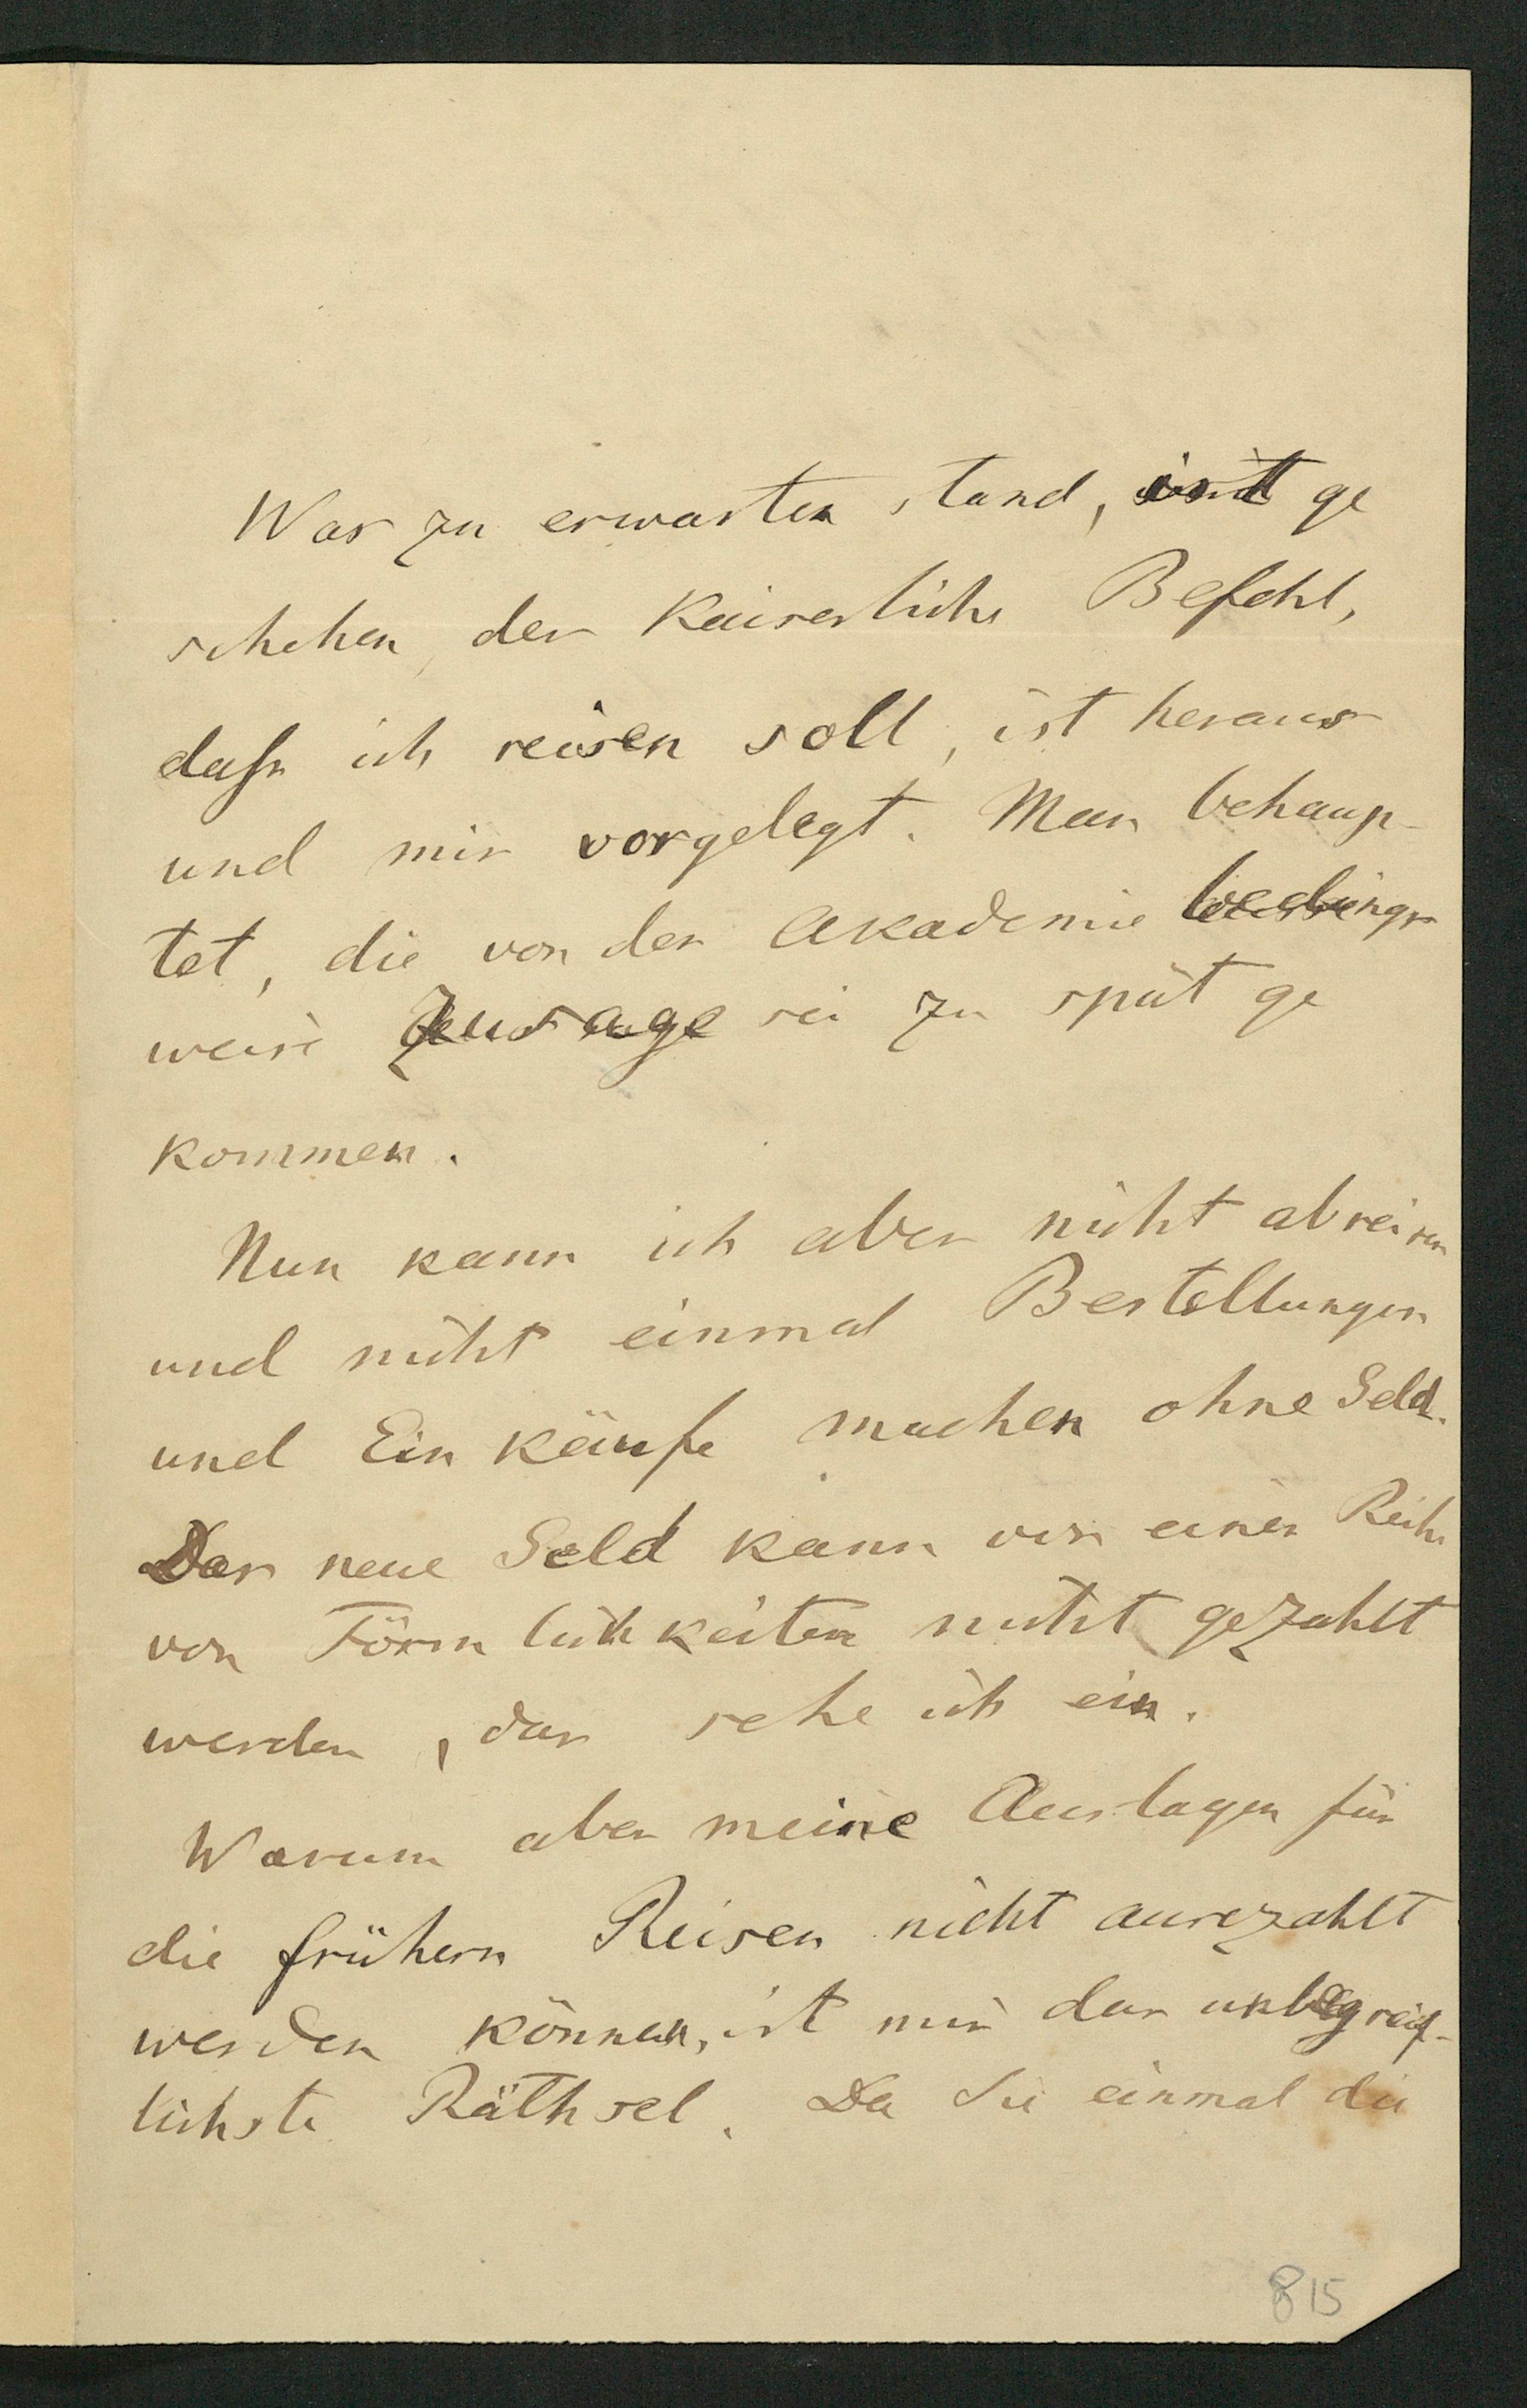 Was zu erwarten stand, ist ge
schehen, der Kaiserliche Befehl,
dass ich reisen soll, ist heraus
und mir vorgelegt. Man behaup-
tet, die von der Akademie bedings
weise Zusage sei zu spät ge
kommen.
Nun kann ich aber nicht abreisen
und nicht einmal Bestellungen
und Ein käufe machen ohne Geld.
Das neue Geld kann vor einer Reihe
von Förmlichkeiten nicht gezahlt
werden, das sehe ich ein.
Warum aber meine Auslagen für
die frühern Reisen nicht ausezahlt
werden können, ist mir das unbegreif-
lichste Räthsel. Da Sie einmal die
815